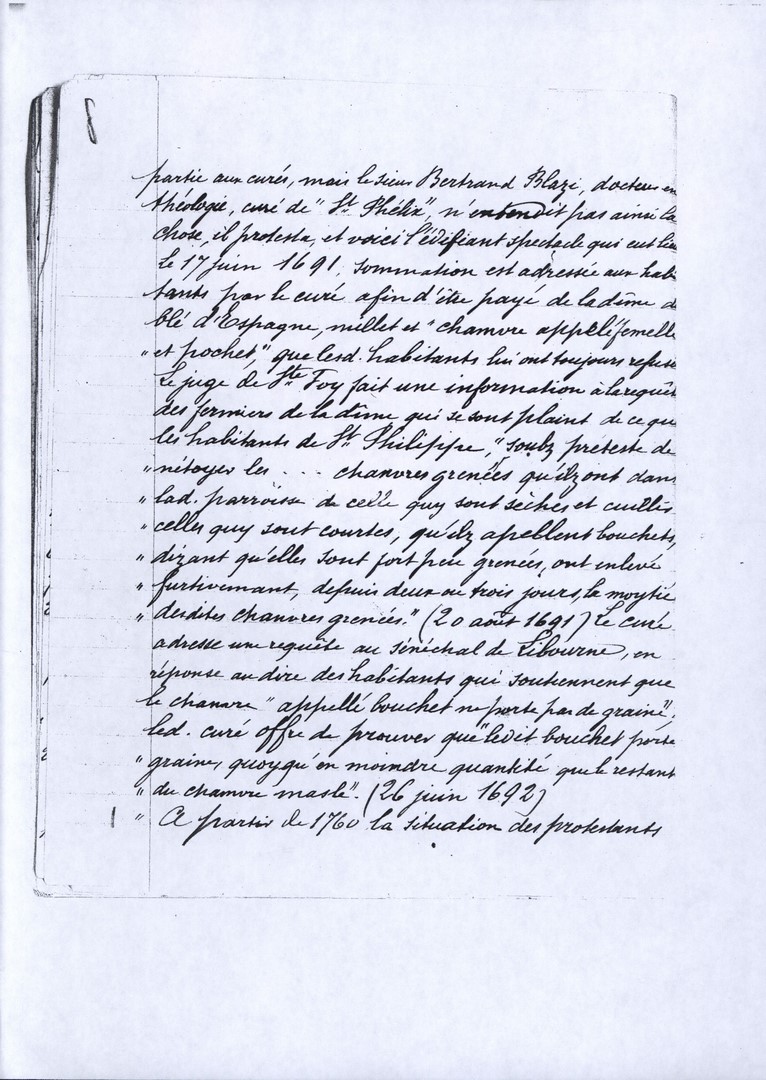 8
partie aux curés, mais le sieur Bertrand Blazi, docteur en
théologie, curé de "St Phélix", n'entendit pas ainsi la
chose, il protesta, et voici l'édifiant spectacle qui eut lieu
le 17 juin 1691; sommation est adressée aux habi
tants par le curé afin d'être payé de la dîme d
blé d'Espagne, millet et "chamvre appelé femelle
" et pochet," que lesd. habitants lui ont toujours refusé
Le juge de Ste Foy fait une information à la requêt
des fermiers de la dîme qui se sont plaint de ce qu
les habitants de St Philippe, "soubz préteste de
" nétoyer les ... chanvres grenées qu'ilz ont dans
" lad. parroisse de celle quy sont sèches et cuillir
" celles quy sont courtes, qu'ilz apellent bouchets,
" dizant qu'elles sont fort peu grenées, ont enlevé
" furtivemant, depuis deux ou trois jours, la moytié
" desdites chanvres grenées." (20 août 1691) Le curé
adresse une requête au sénéchal de Libourne, en
réponse au dire des habitants qui soutiennent que
le chanvre "appellé bouchet ne porte pas de graine".
led. curé offre de prouver que "ledit bouchet porte
" graine, quoyqu'en moindre quantité que le restant
" du chamvre masle". (26 juin 1692)
" A partir de 1760 la situation des protestants